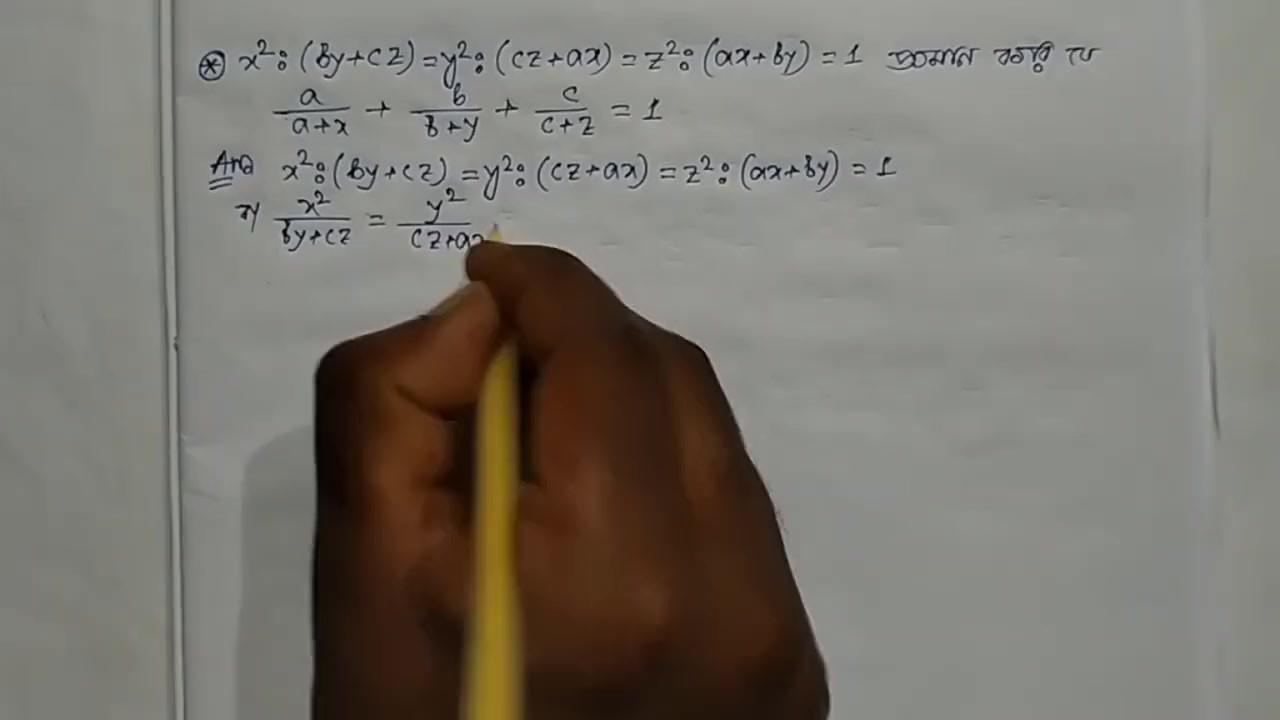 ⊛ x²:(by+cz)=y²:(cz+ax)=z²:(ax+by)=1 প্রমাণ করি যে
a/(a+x) + b/(b+y) + c/(c+z) = 1
Ans x²:(by+cz)=y²:(cz+ax)=z²:(ax+by)=1
বা x²/(by+cz) = y²/(cz+ax